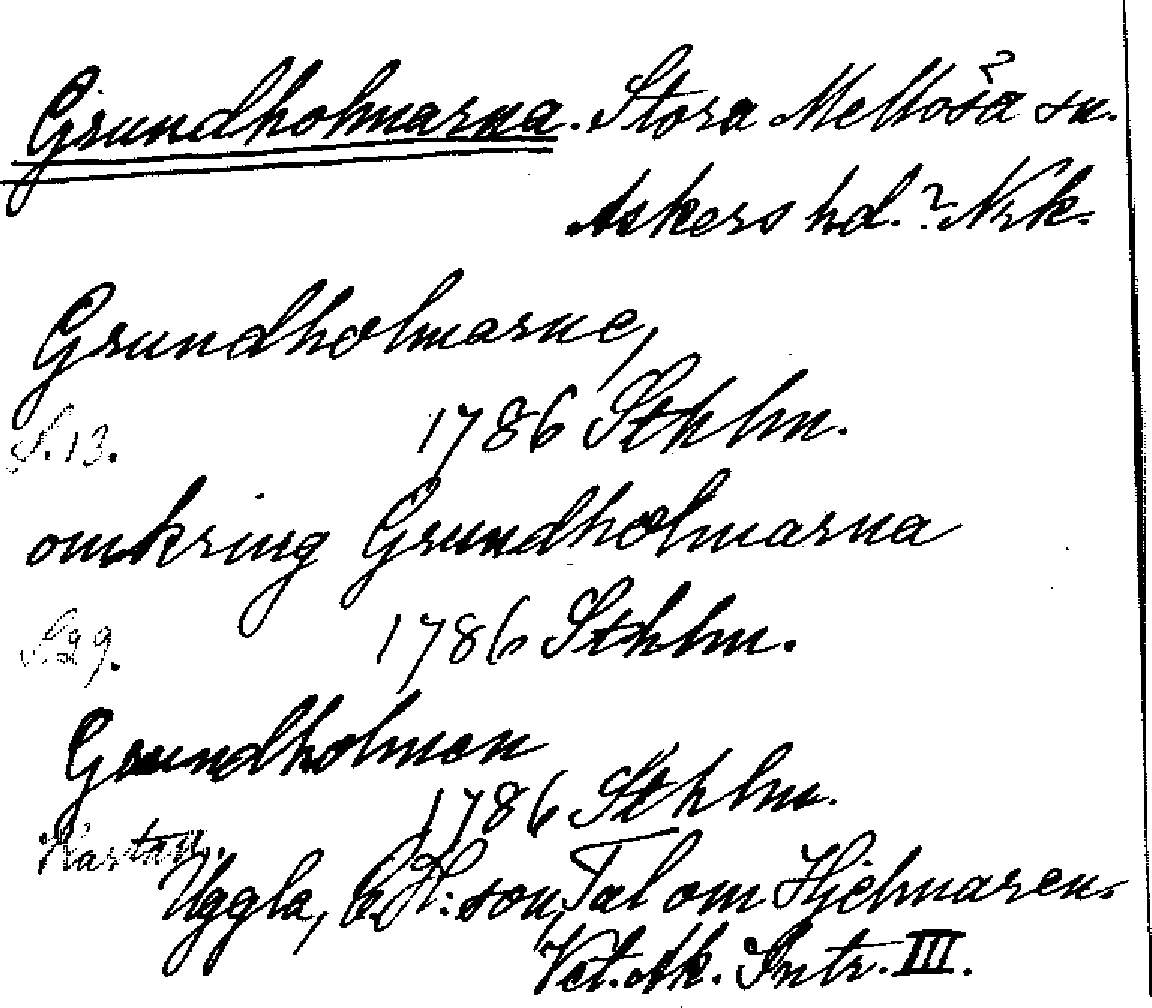 Grundholmarna. Stora Mellösa? sn.
Askers hd.? Nrk.
Grundholmarne,
S. 13. 1786 Sthlm.
omkring Grundholmarna
S. 29. 1786 Sthlm.
Grundholmen
1786 Sthlm.
Kartan.
Uggla, C. H:son, Tal om Hjelmaren.
Vet. Ak. Intr. III.